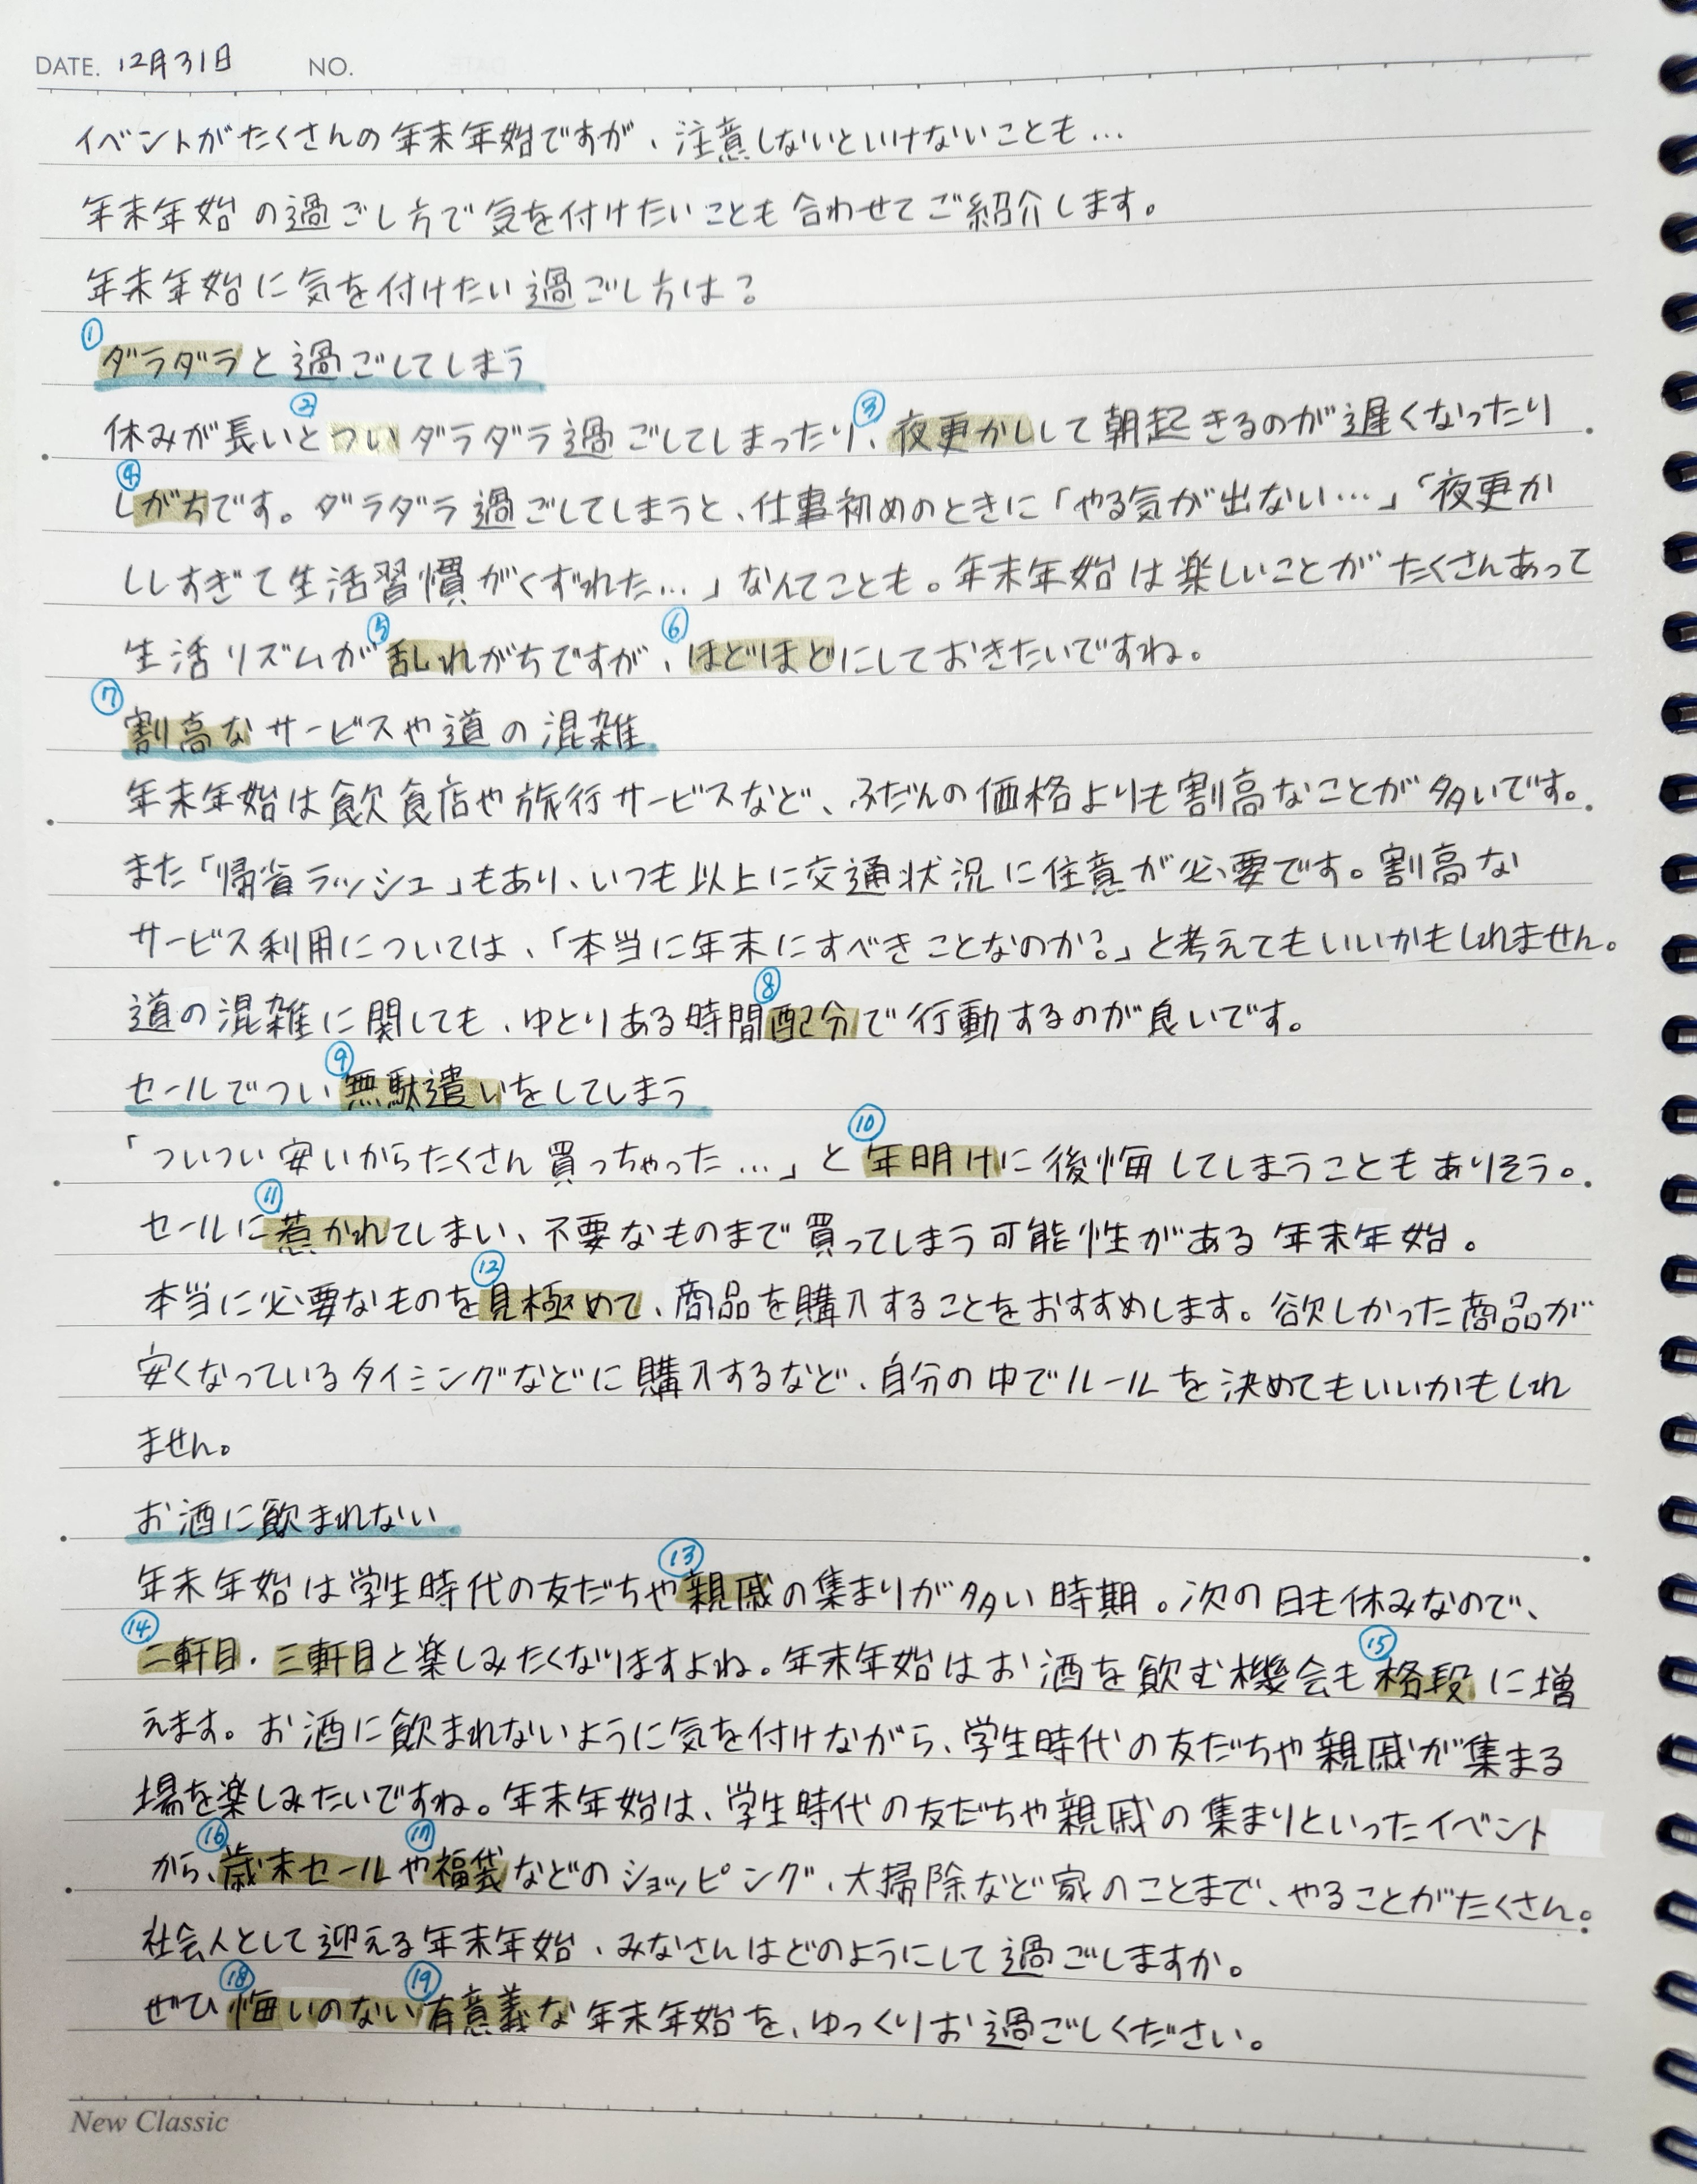 DATE. 12月31日 NO.
イベントがたくさんの年末年始ですが、注意しないといけないことも…
年末年始の過ごし方で気を付けたいことも合わせてご紹介します。
年末年始に気を付けたい過ごし方は？
①
ダラダラと過ごしてしまう
② ③
休みが長いとついダラダラ過ごしてしまったり、夜更かしして朝起きるのが遅くなったり
④
しがちです。ダラダラ過ごしてしまうと、仕事初めのときに「やる気が出ない…」「夜更か
ししすぎて生活習慣がくずれた…」なんてことも。年末年始は楽しいことがたくさんあって
⑤ ⑥
生活リズムが乱れがちですが、ほどほどにしておきたいですね。
⑦
割高なサービスや道の混雑
年末年始は飲食店や旅行サービスなど、ふだんの価格よりも割高なことが多いです。
また「帰省ラッシュ」もあり、いつも以上に交通状況に住意が必要です。割高な
サービス利用については、「本当に年末にすべきことなのか？」と考えてもいいかもしれません。
⑧
道の混雑に関しても、ゆとりある時間配分で行動するのが良いです。
⑨
セールでつい無駄遣いをしてしまう
⑩
「ついつい安いからたくさん買っちゃった…」と年明けに後悔してしまうこともありそう。
⑪
セールに惹かれてしまい、不要なものまで買ってしまう可能性がある年末年始。
⑫
本当に必要なものを見極めて、商品を購入することをおすすめします。欲しかった商品が
安くなっているタイミングなどに購入するなど、自分の中でルールを決めてもいいかもしれ
ません。
お酒に飲まれない
⑬
年末年始は学生時代の友だちや親戚の集まりが多い時期。次の日も休みなので、
⑭ ⑮
二軒目・三軒目と楽しみたくなりますよね。年末年始はお酒を飲む機会も格段に増
えます。お酒に飲まれないように気を付けながら、学生時代の友だちや親戚が集まる
場を楽しみたいですね。年末年始は、学生時代の友だちや親戚の集まりといったイベント
⑯ ⑰
から、歳末セールや福袋などのショッピング、大掃除など家のことまで、やることがたくさん。
社会人として迎える年末年始、みなさんはどのようにして過ごしますか。
⑱ ⑲
ぜひ悔いのない有意義な年末年始を、ゆっくりお過ごしください。
New Classic